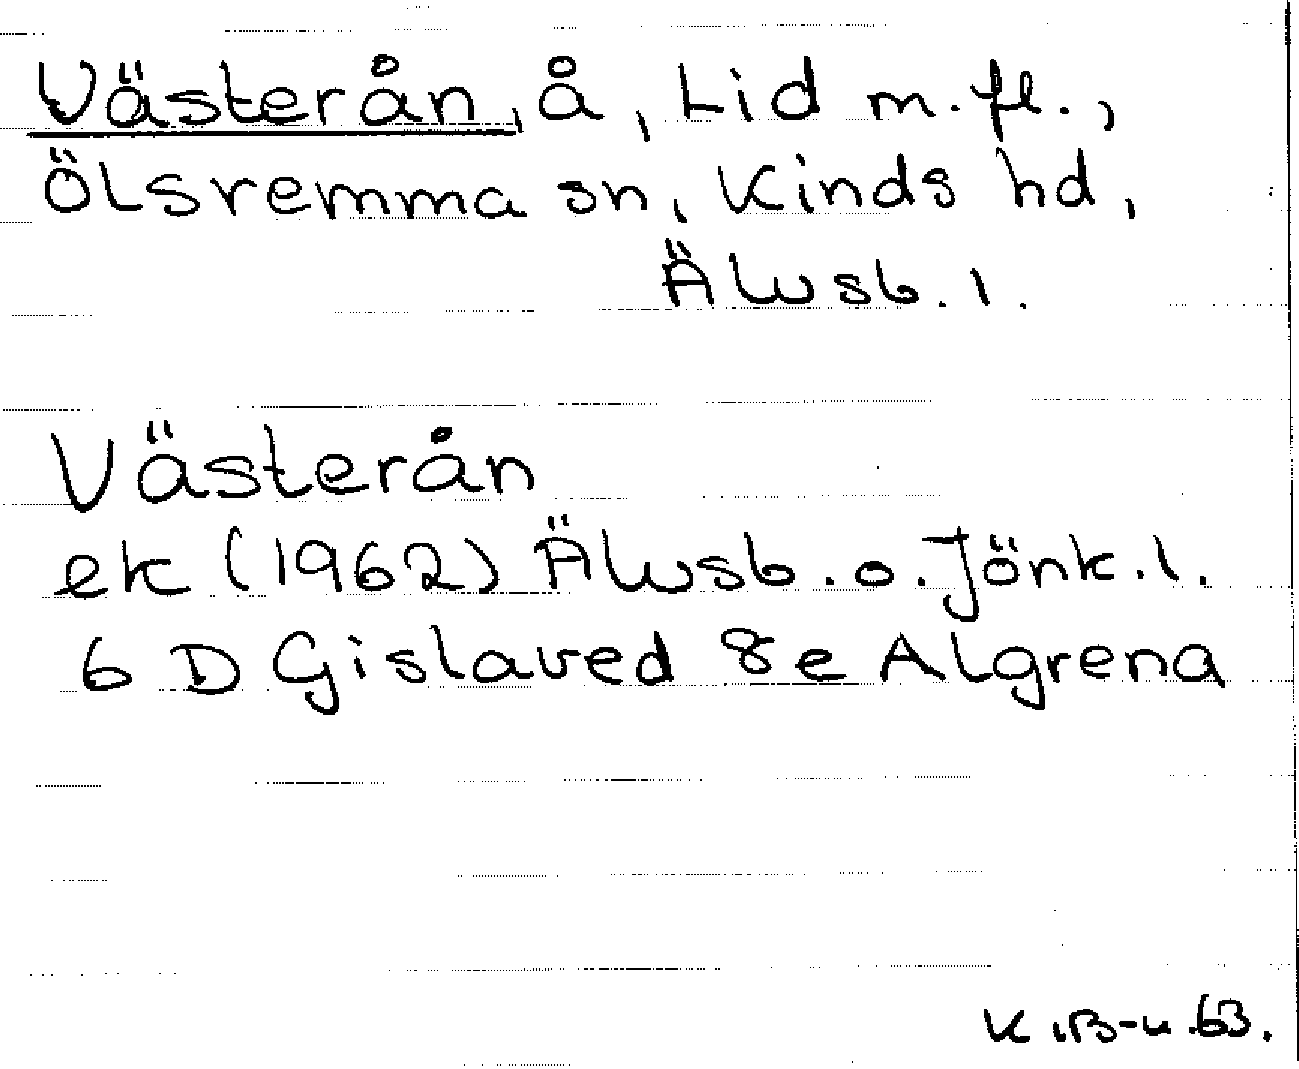 Västerån, å, Lid m.fl.,
Ölsremma sn, Kinds hd,
Älvsb. l.
Västerån
ek (1962) Älvsb. o. Jönk. l.
6 D Gislaved 8e Algrena
K.B-u.63.